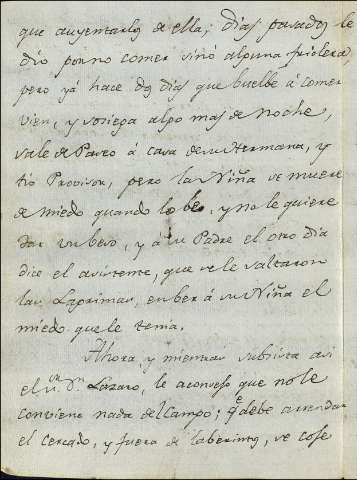 que auyentarlos de ella; dias pasados le
dio por no comer sino alguna friolera,
pero yá hace dos dias que buelbe á comer
vien, y sosiega algo mas de noche,
sale de Paseo á casa de su Hermana, y
tio Provisor, pero la Niña se muere
de miedo quando lo be, y no le quiere
dar un beso, y á su Padre el otro dia
dice el asistente, que se le saltaron
las Lagrimas, en ber á su Niña el
miedo que le tenia.
Ahora y mientras subsista asi
el Sr. Dn. Lazaro, le aconsejo que no le
conviene nada del Campo; qe debe arrendar
el Cercado, y fuera de laberintos, se cose